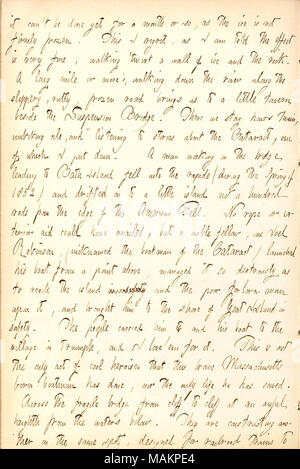 it can't be done yet for a month or so, as the ice is not
firmly frozen. This I regret, as I am told the effect
is very fine, walking 'twixt a wall of ice and the rock.
A long mile or more's walking down the river along the
slippery, rutty, frozen road brings us to a little tavern
beside the Suspension Bridge. There we stay awhile,
imbibing ale, and listening to stories about the Cataract, one
of which I put down. A man working in the bridge
leading to Bath island fell into the rapids (during the Spring of
1852) and drifted on to a little island not a hundred
rods from the edge of the American Fall. No rope or ex-
terior aid could have availed, but a noble fellow, one Joel
Robinson, (nicknamed the boatman of the Cataract) launched
his boat from a point above, managed it so dexterously as
to reach the island and the poor forlorn man
upon it, and brought him to the shore of Goat Island in
safety. The people carried him to and his boat to the
village in triumph, and I love em for it. This is not
the only act of cool heroism that this brave Massachusetts
born boatman has done, nor the only life he has saved.
Across the fragile bridge from cliff to cliff at an awful
heighth from the waters below. They are constructing an-
other in the same spot, designed for railroad trains to
alamy
Image ID: MAKPE4
www.alamy.com